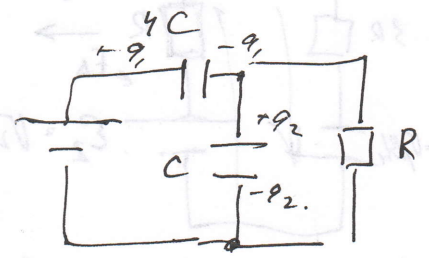 4C
+q₁ -q₁
+q₂
C R
-q₂.